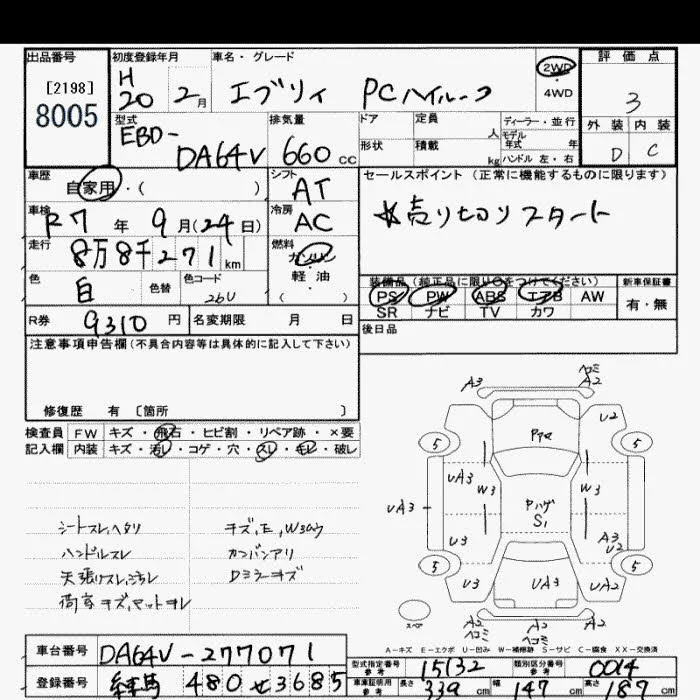 出品番号
[2198]
8005
初度登録年月
H
20 2月
車名・グレード
エブリィ PCハイルーフ
2WD
・
4WD
評価点
3
外装 内装
D C
型式
EBD-
DA64V
排気量
660 CC
ドア 定員 人
形状 積載 kg
ディーラー・並行
モデル
年式 年
ハンドル 左・右
車歴
自家用・( )
シフト
AT
車検
R7年 9月(24日)
冷房
AC
走行
8万8千271 km
燃料
ガソリン
・
軽油
( )
色
白
色替
色コード
26U
セールスポイント (正常に機能するものに限ります)
★売り切りスタート
装備品 (純正品に限り○をつけてください)
PS PW ABS エアB AW
SR ナビ TV カワ
新車保証書
有・無
後日品
R券 9310円
名変期限 月 日
注意事項申告欄(不具合内容等は具体的に記入して下さい)
修復歴 有 〔箇所 〕
検査員 FW キズ・飛石・ヒビ割・リペア跡・×要
記入欄 内装 キズ・汚レ・コゲ・穴・スレ・モレ・破レ
シートスレ,ヘタリ
ハンドルスレ
天張りスレ,汚レ
荷室キズ,マットヨレ
キズ,E,W3あり
カンバンアリ
Dミラーキズ
A3
ヘコミ
A2
U2
5
5
UA3
W3
Pハゲ
S1
W3
UA3
A3
U2
U3
5
5
U3
UA3
UA2
スペア
A2
ヘコミ
A2
ヘコミ
A2
A-キズ E-エクボ U-凹み W-補修跡 S-サビ C-腐食 XX-交換済
車台番号 DA64V-277071
登録番号 練馬 480 せ 3685
型式指定番号
参考
15132
類別区分番号
参考
0014
車庫証明用
参考
長さ 339 cm 幅 147 cm 高さ 187 cm